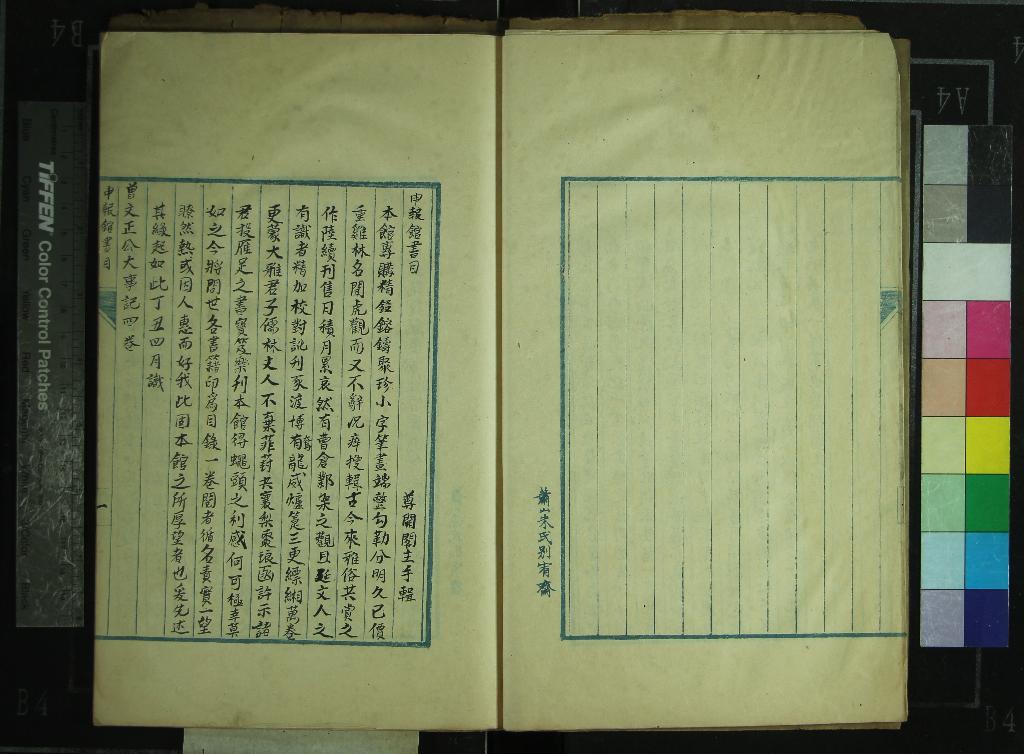 蕭山朱氏別宥齋
申報舘書目
尊聞閣主手輯
本舘專購精鉛鎔鑄聚珍小字筆畫端整勾勒分明久已價
重雞林名聞虎觀而又不辭况瘁搜輯古今來雅俗共賞之
作陸續刊售日積月累裒然有曹倉鄴架之觀且延文人之
有識者精加校對訛刋豕渡博有龍威爐篕三更縹緗萬卷
更蒙大雅君子儒林丈人不棄菲葑共襄梨棗琅函許示諸
君投雁足之書寶笈樂刋本舘得蠅頭之利感何可極幸莫
如之今將問世各書籍印爲目錄一卷閱者循名責實一望
瞭然熱或因人惠而好我此固本舘之所厚望者也爰先述
其緣起如此丁丑四月識
曾文正公大事記四卷
申報舘書目
一
B4
A4
B4
B4
TIFFEN Color Control Patches